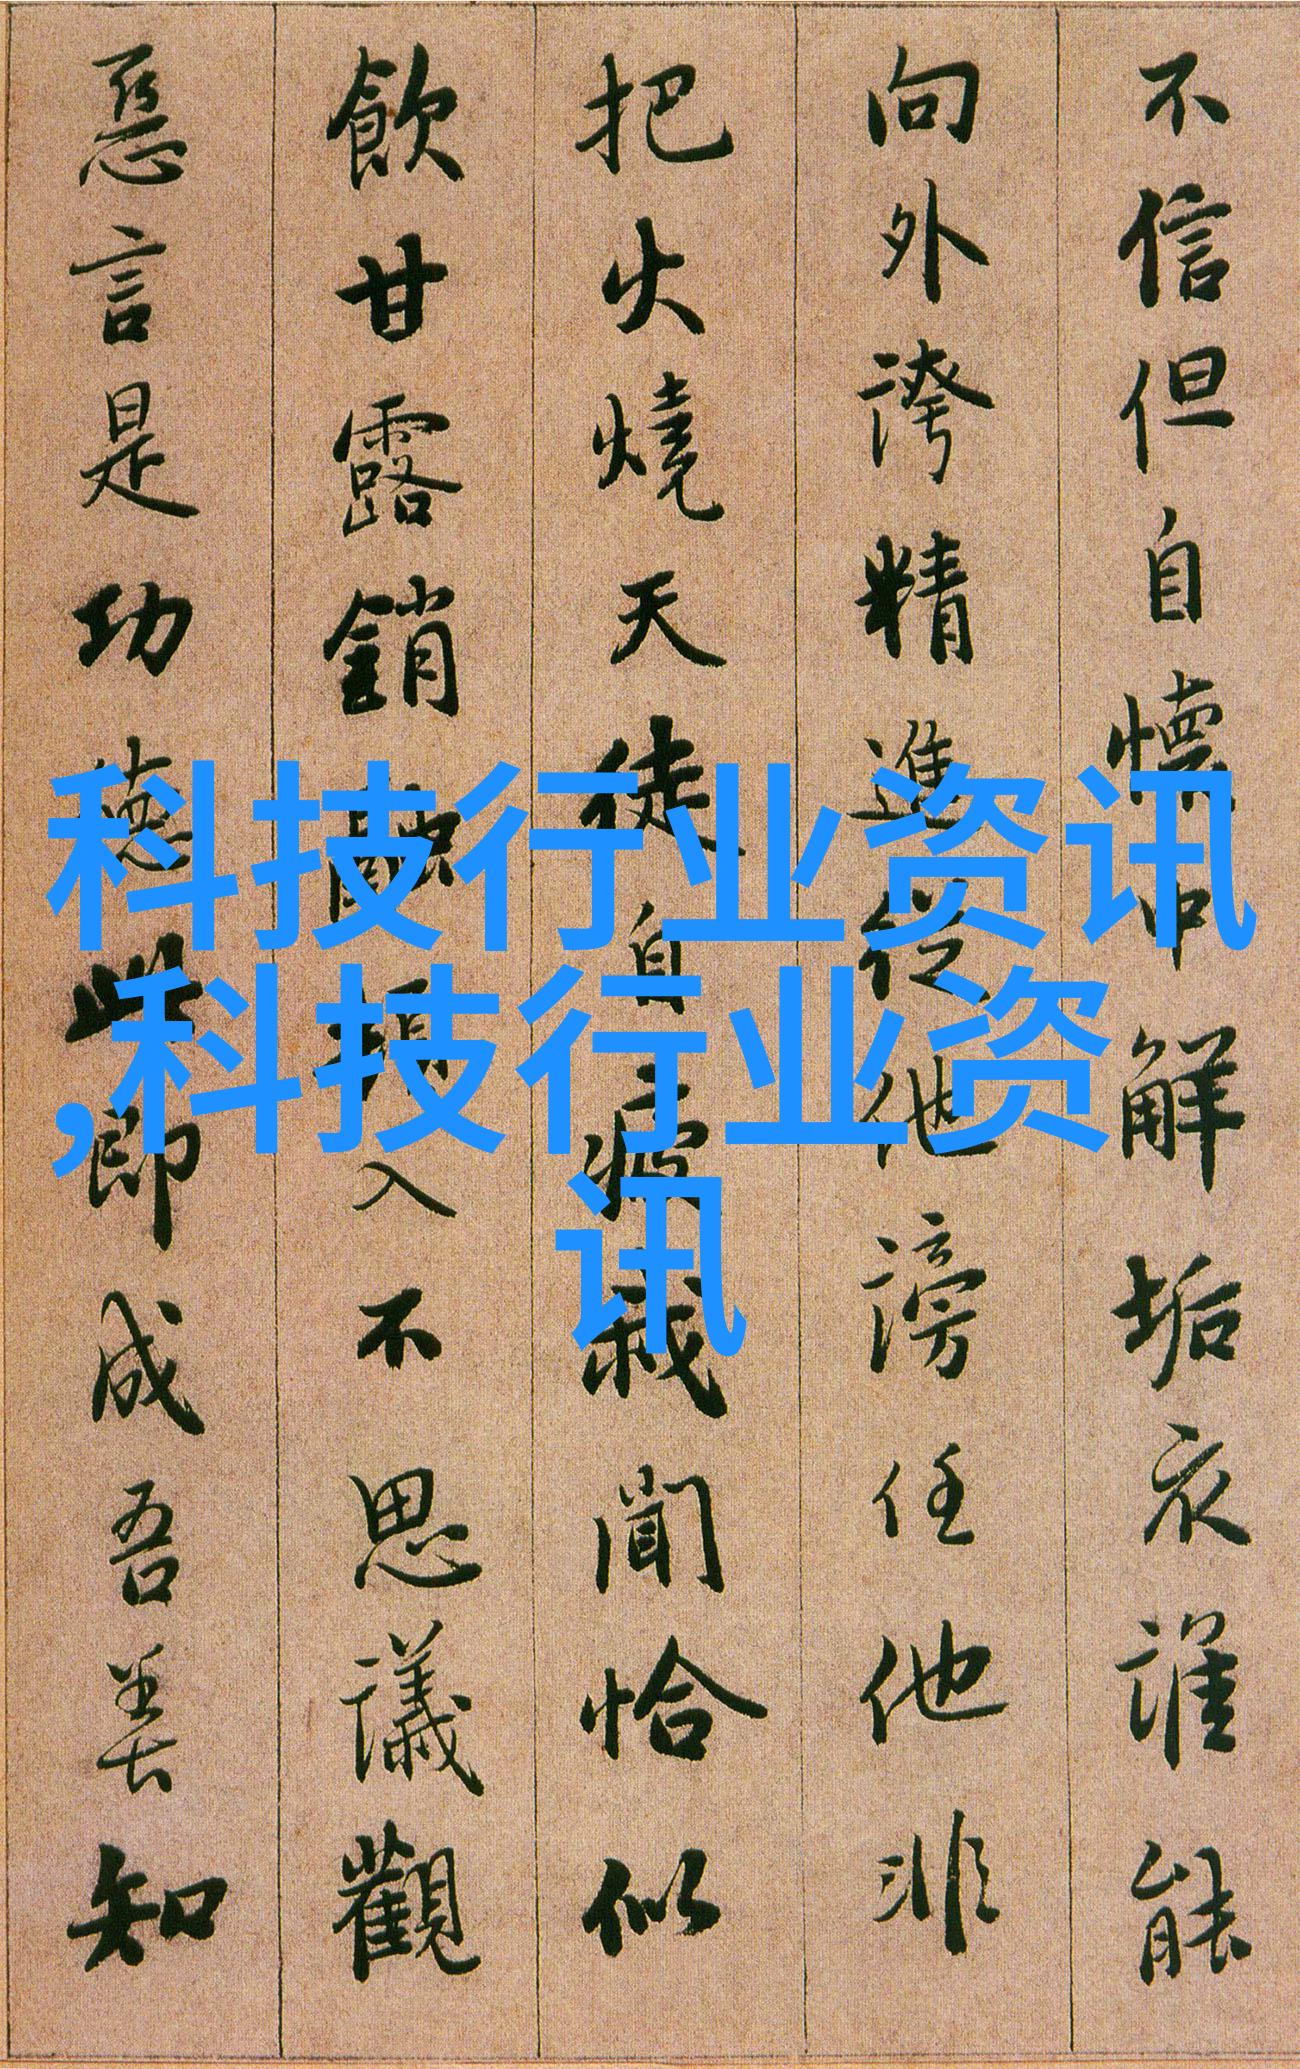 不信但自懷中解垢衣誰能
向外誇精進從他謗任他非
把火燒天徒自疲我聞恰似
飲甘露銷融頓入不思議觀
惡言是功德此即成吾善知
科技行业资讯
,科技行业资
讯